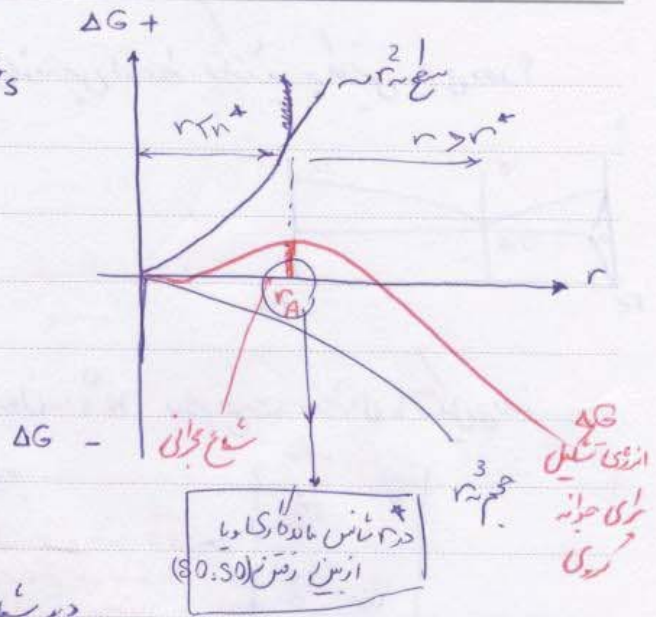 ΔG +
سطح ~r²
r<r*
r > r*
r
r_A
ΔG -
شعاع بحرانی
حجم ~r³
ΔG
انرژی تشکیل
برای جوانه
کروی
در r* شانس ماندگاری و یا
از بین رفتن (50:50)